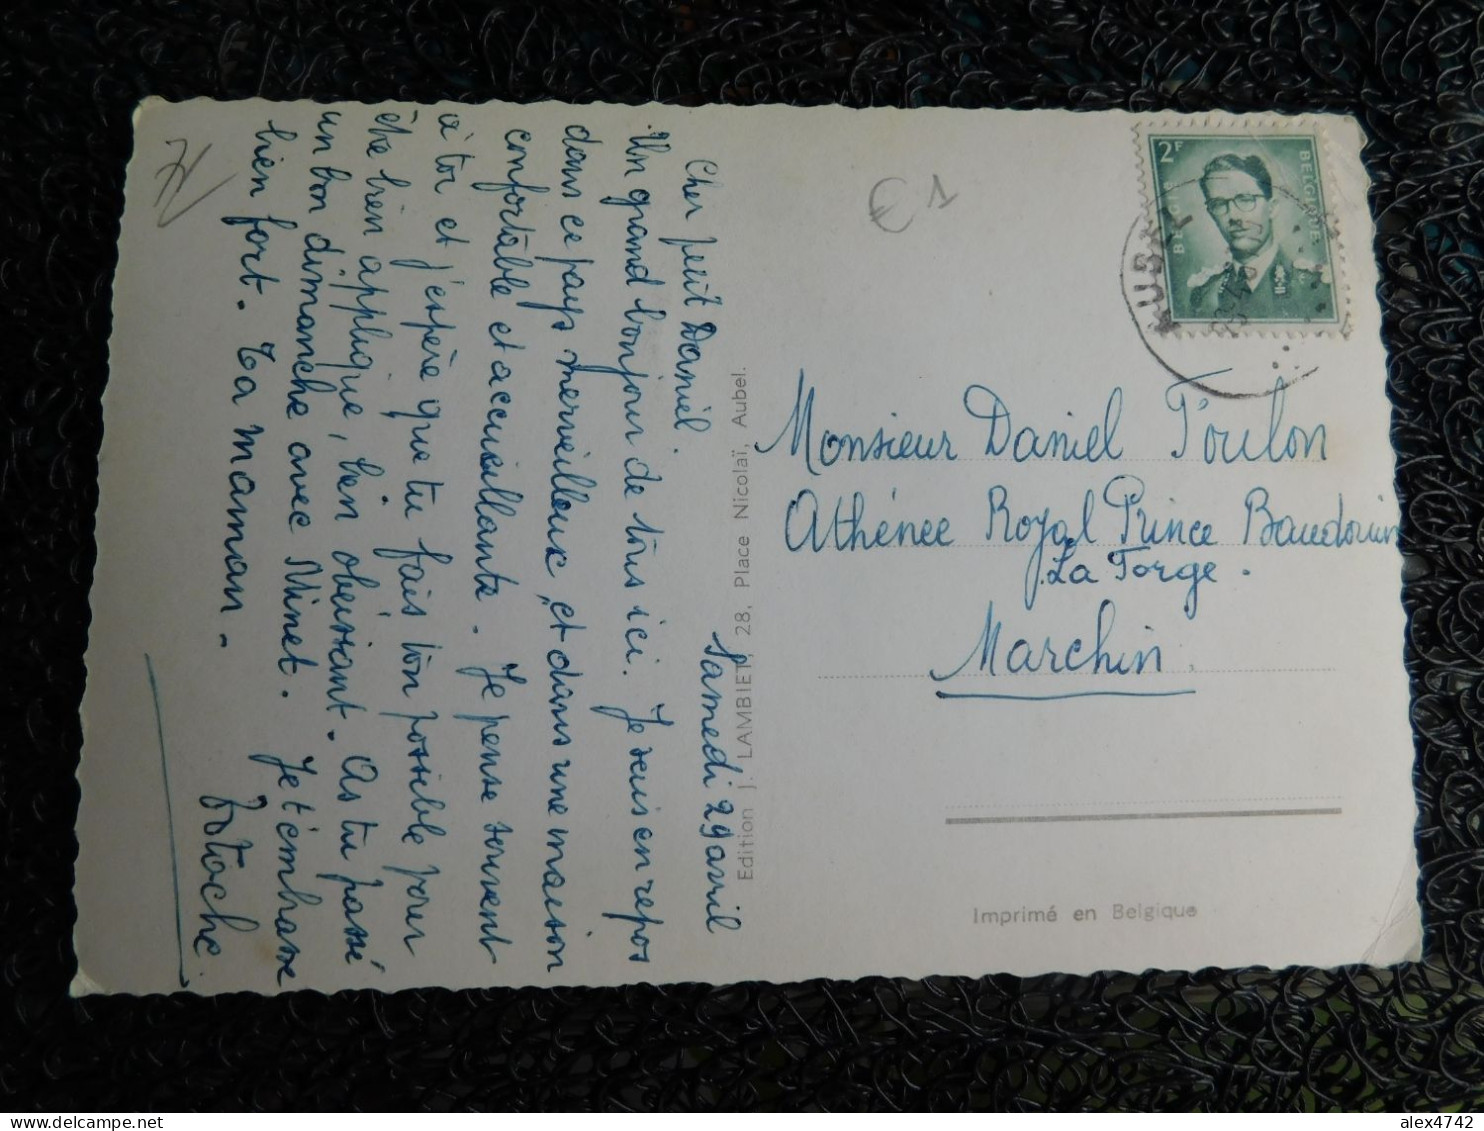 Cher petit Daniel.
Samedi 29 avril
Un grand bonjour de tous ici. Je suis en repos
dans ce pays merveilleux, et dans une maison
confortable et accueillante. Je pense souvent
à toi et j'espère que tu fais ton possible pour
être bien appliqué, bien obéissant. As tu passé
un bon dimanche avec Minet. Je t'embrasse
bien fort. Ta maman.
Totoche.
Edition J. LAMBIET, 28, Place Nicolaï, Aubel.
€ 1
2F
BELGIQUE
BELGIE
AUBEL
Monsieur Daniel Toulon
Athénée Royal Prince Baudouin
La Forge.
Marchin
Imprimé en Belgique
alex4742